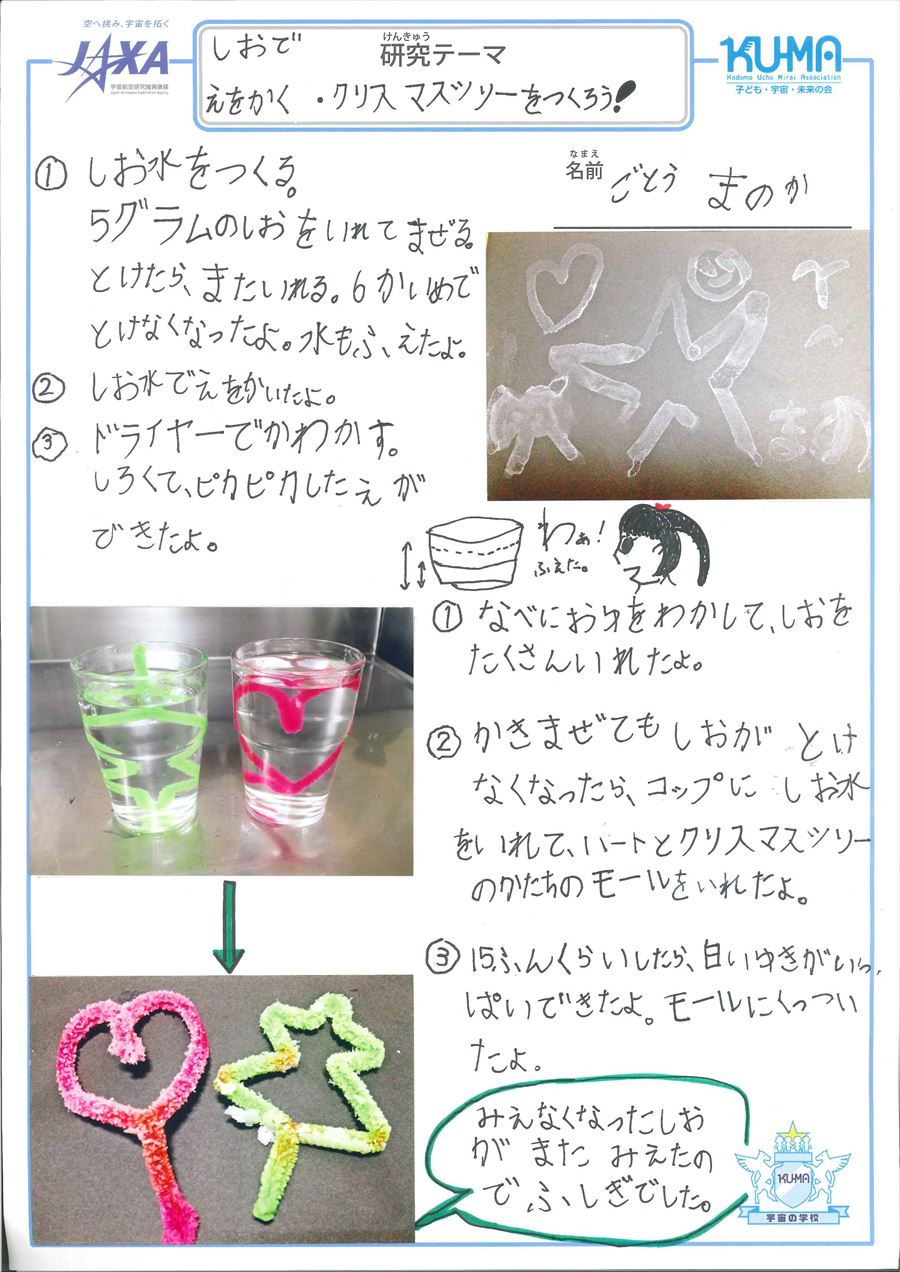 空へ挑み、宇宙を拓く
JAXA
宇宙航空研究開発機構
Japan Aerospace Exploration Agency
しおで
けんきゅう
研究テーマ
えをかく ・クリスマスツリーをつくろう!
KU-MA
Kodomo Uchu Mirai Association
子ども・宇宙・未来の会
なまえ
名前
ごとう まのか
① しお水をつくる。
5グラムのしおをいれてまぜる。
とけたら、またいれる。6かいめで
とけなくなったよ。水もふえたよ。
② しお水でえをかいたよ。
③ ドライヤーでかわかす。
しろくて、ピカピカしたえが
できたよ。
わぁ!
ふえた。
① なべにお水をわかして、しおを
たくさんいれたよ。
② かきまぜてもしおがとけ
なくなったら、コップにしお水
をいれて、ハートとクリスマスツリー
のかたちのモールをいれたよ。
③ 15ふんくらいしたら、白いゆきがいっ
ぱいできたよ。モールにくっつい
たよ。
みえなくなったしお
がまたみえたの
でふしぎでした。
KU-MA
宇宙の学校